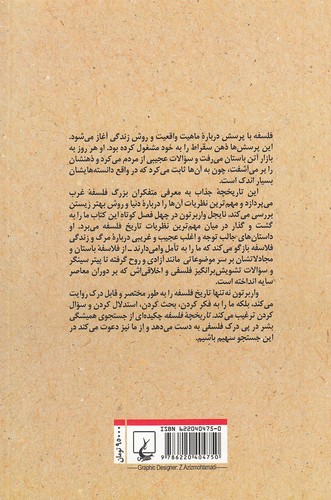 فلسفه با پرسش دربارهٔ ماهیت واقعیت و روش زندگی آغاز می‌شود.
این پرسش‌ها ذهن سقراط را به خود مشغول کرده بود. او هر روز به
بازار آتن باستان می‌رفت و سؤالات عجیبی از مردم می‌کرد و ذهنشان
را بر می‌آشفت، چون به آن‌ها ثابت می‌کرد که در واقع دانسته‌هایشان
بسیار اندک است.
این تاریخچهٔ جذاب به معرفی متفکران بزرگ فلسفهٔ غرب
می‌پردازد و مهم‌ترین نظریات آن‌ها را دربارهٔ دنیا و روش بهتر زیستن
بررسی می‌کند. نایجل واربرتون در چهل فصل کوتاه این کتاب ما را به
گشت و گذار در میان مهم‌ترین نظریات تاریخ فلسفه می‌برد. او
داستان‌های جالب توجه و اغلب عجیب و غریبی دربارهٔ مرگ و زندگی
فلاسفه بازگو می‌کند که ما را به تأمل وامی‌دارند ـ از فلاسفهٔ باستان و
مجادلاتشان بر سر موضوعاتی مانند آزادی و روح گرفته تا پیتر سینگر
و سؤالات تشویش‌برانگیز فلسفی و اخلاقی‌اش که بر دوران معاصر
سایه انداخته است.
واربرتون نه‌تنها تاریخ فلسفه را به طور مختصر و قابل درک روایت
می‌کند، بلکه ما را به فکر کردن، بحث کردن، استدلال کردن و سؤال
کردن ترغیب می‌کند. تاریخچهٔ فلسفه چکیده‌ای از جستجوی همیشگی
بشر در پی درک فلسفی به دست می‌دهد و از ما نیز دعوت می‌کند در
این جستجو سهیم باشیم.
ISBN 622040475-0
9 786220 404750
۹۵۰۰۰ تومان
Graphic Designer: Z.Azizmohamadi